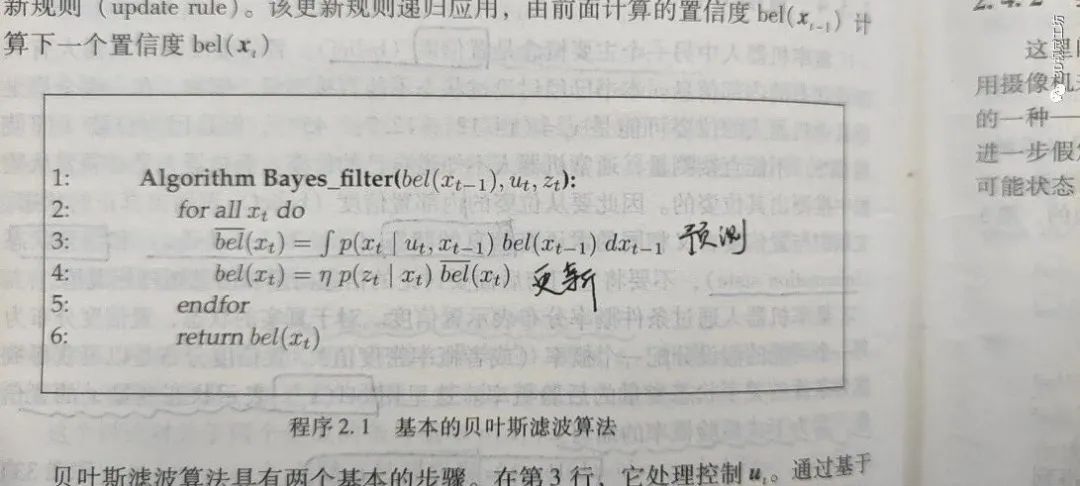 新规则（update rule）。该更新规则递归应用，由前面计算的置信度 bel(x_{t-1}) 计
算下一个置信度 bel(x_t)
1: Algorithm Bayes_filter(bel(x_{t-1}), u_t, z_t):
2: for all x_t do
3: \overline{bel}(x_t) = ∫ p(x_t | u_t, x_{t-1}) bel(x_{t-1}) dx_{t-1} 预测
4: bel(x_t) = η p(z_t | x_t) \overline{bel}(x_t) 更新
5: endfor
6: return bel(x_t)
程序 2.1 基本的贝叶斯滤波算法
贝叶斯滤波算法具有两个基本的步骤。在第 3 行，它处理控制 u_t。通过基于
2.4.2
这里
用摄像机
的一种——
进一步假
可能状态